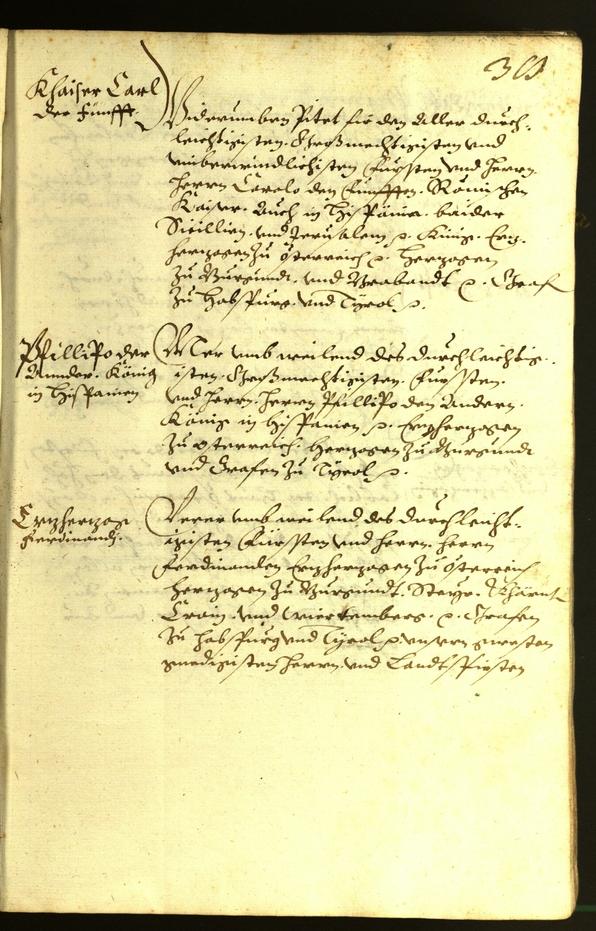 Khaiser Carl
der Fünfft.
Widerumben Pitet für den aller durch-
leichtigisten. Großmechtigisten vnd
vnüberwindlichisten Fürsten vnd herrn.
herrn Carolo den Fünfften. Römischen
Kaiser. Auch in Hispania. baider
Sicillien. vnd Jerusalem p. Künig. Erz-
herzogen zu Österreich p. herzogen
zu Burgundt. vnd Brabandt p. Graf
zu Habspurg. vnd Tyrol p.
Phillipo der
Annder. König
in Hispanien
Mer vmb weilend des durchleichtig-
isten. Großmechtigisten. Fürsten.
vnd herrn. herrn Phillipo den Andern.
König in hispanien p. Erzherzogen
zu Österreich. herzogen zu Burgundt
vnd Grafen zu Tyrol p.
Erzherzog
Ferdinandt.
Verer vmb weilend des durchleicht-
igisten Fürsten vnd herrn. herrn
Ferdinanden Erzherzogen zu Österreich
herzogen zu Burgundt. Steyr. Khärnt
Crain. vnd Wiertemberg. p. Grafen
zu habspurg vnd Tyrol p. vnsern
genedigisten herrn. vnd Landtsfürsten